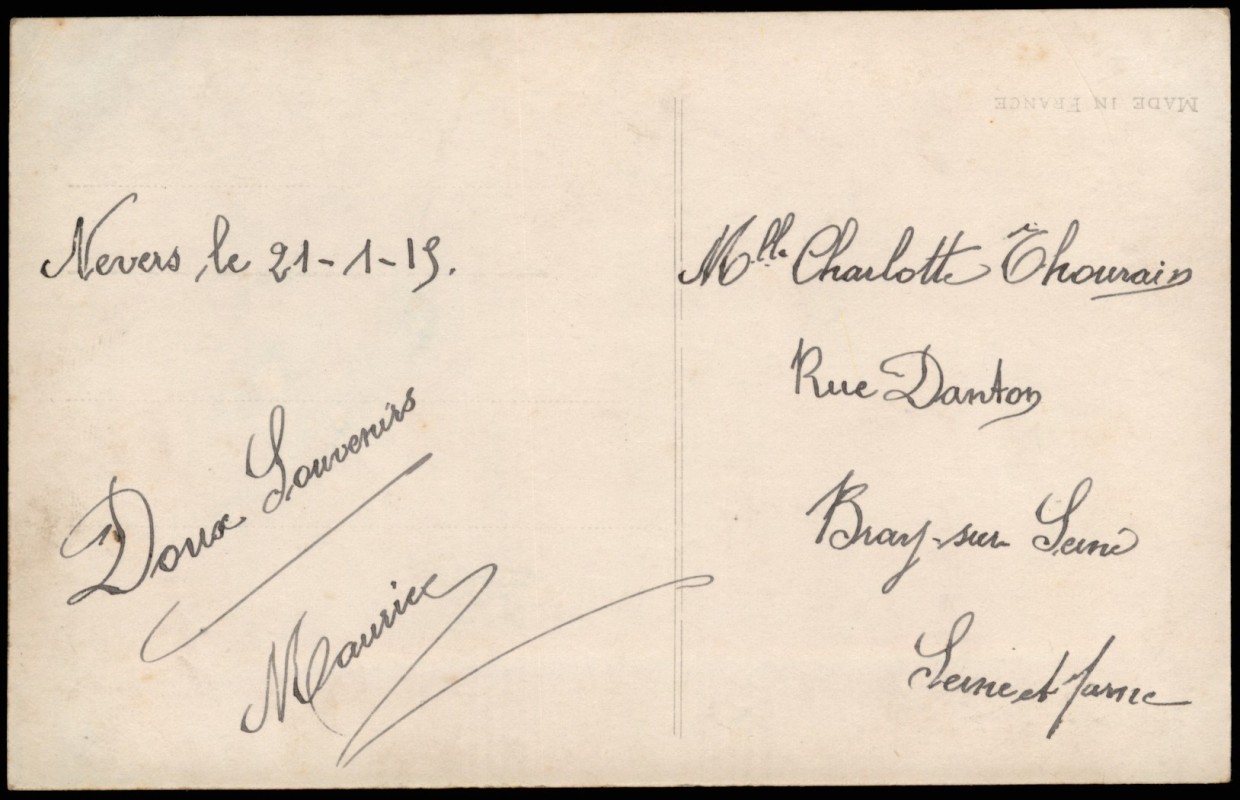 MADE IN FRANCE
Nevers, le 21-1-19.
Doux Souvenirs
Maurice
Mlle Charlotte Thourain
Rue Danton
Bray-sur Seine
Seine et Marne